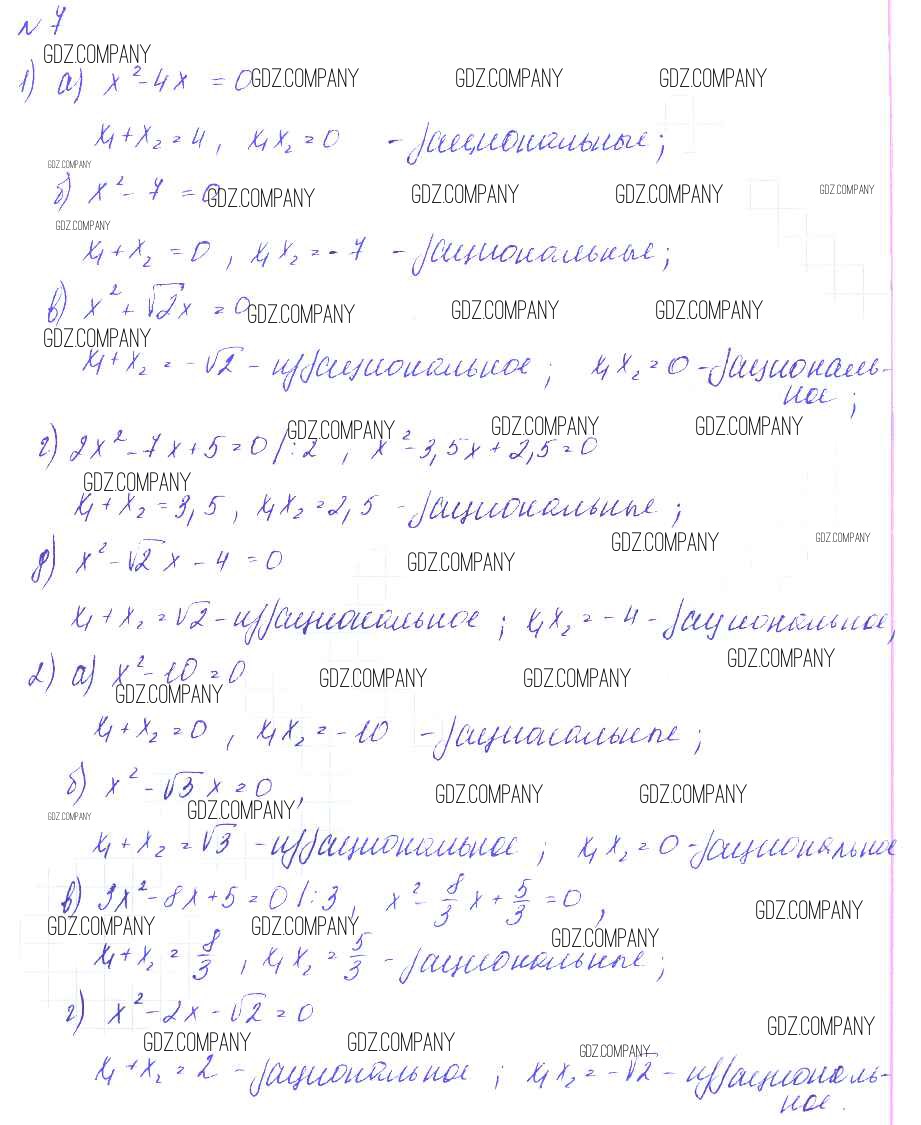 № 7
GDZ.COMPANY
1) а) x² - 4x = 0 GDZ.COMPANY GDZ.COMPANY GDZ.COMPANY
x₁ + x₂ = 4, x₁x₂ = 0 - рациональные;
GDZ.COMPANY
б) x² - 7 = 0 GDZ.COMPANY GDZ.COMPANY GDZ.COMPANY GDZ.COMPANY
GDZ.COMPANY
x₁ + x₂ = 0, x₁x₂ = -7 - рациональные;
в) x² + √2x = 0 GDZ.COMPANY GDZ.COMPANY GDZ.COMPANY
GDZ.COMPANY
x₁ + x₂ = -√2 - иррациональное; x₁x₂ = 0 - рациональ-
ное;
GDZ.COMPANY GDZ.COMPANY GDZ.COMPANY
г) 2x² - 7x + 5 = 0 /:2, x² - 3,5x + 2,5 = 0
GDZ.COMPANY
x₁ + x₂ = 3,5, x₁x₂ = 2,5 - рациональные;
GDZ.COMPANY GDZ.COMPANY
д) x² - √2x - 4 = 0 GDZ.COMPANY
x₁ + x₂ = √2 - иррациональное; x₁x₂ = -4 - рациональное,
GDZ.COMPANY
2) а) x² - 10 = 0 GDZ.COMPANY GDZ.COMPANY
GDZ.COMPANY
x₁ + x₂ = 0, x₁x₂ = -10 - рациональные;
б) x² - √3x = 0, GDZ.COMPANY GDZ.COMPANY
GDZ.COMPANY GDZ.COMPANY
x₁ + x₂ = √3 - иррациональное; x₁x₂ = 0 - рациональное
в) 3x² - 8x + 5 = 0 /:3, x² - 8/3 x + 5/3 = 0, GDZ.COMPANY
GDZ.COMPANY GDZ.COMPANY GDZ.COMPANY
x₁ + x₂ = 8/3, x₁x₂ = 5/3 - рациональные;
г) x² - 2x - √2 = 0 GDZ.COMPANY
GDZ.COMPANY GDZ.COMPANY GDZ.COMPANY
x₁ + x₂ = 2 - рациональное; x₁x₂ = -√2 - иррациональ-
ное.